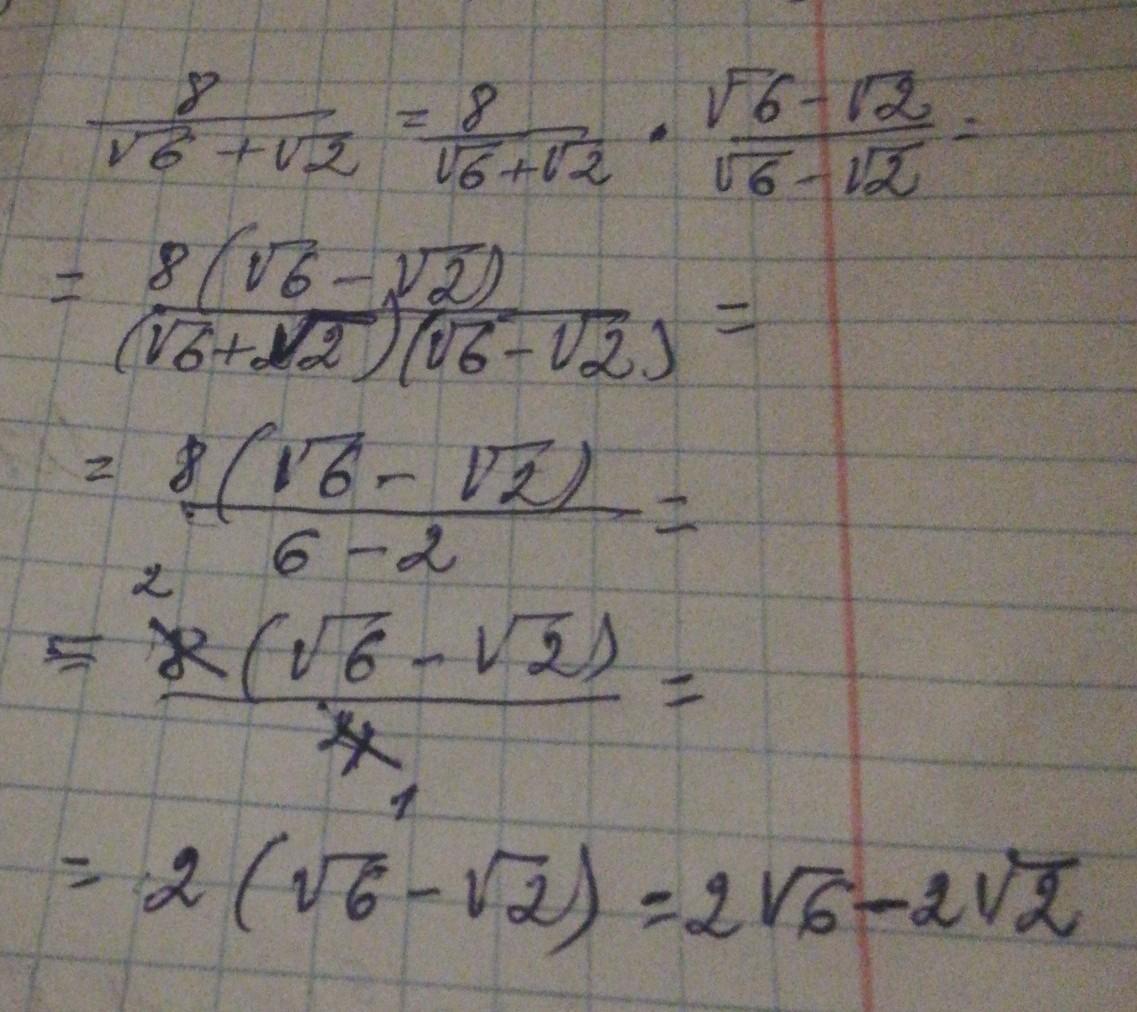 8/(√6+√2) = 8/(√6+√2) · (√6-√2)/(√6-√2) =
= 8(√6-√2)/((√6+√2)(√6-√2)) =
= 8(√6-√2)/(6-2) =
2
= 8(√6-√2)/4 =
1
= 2(√6-√2) = 2√6-2√2